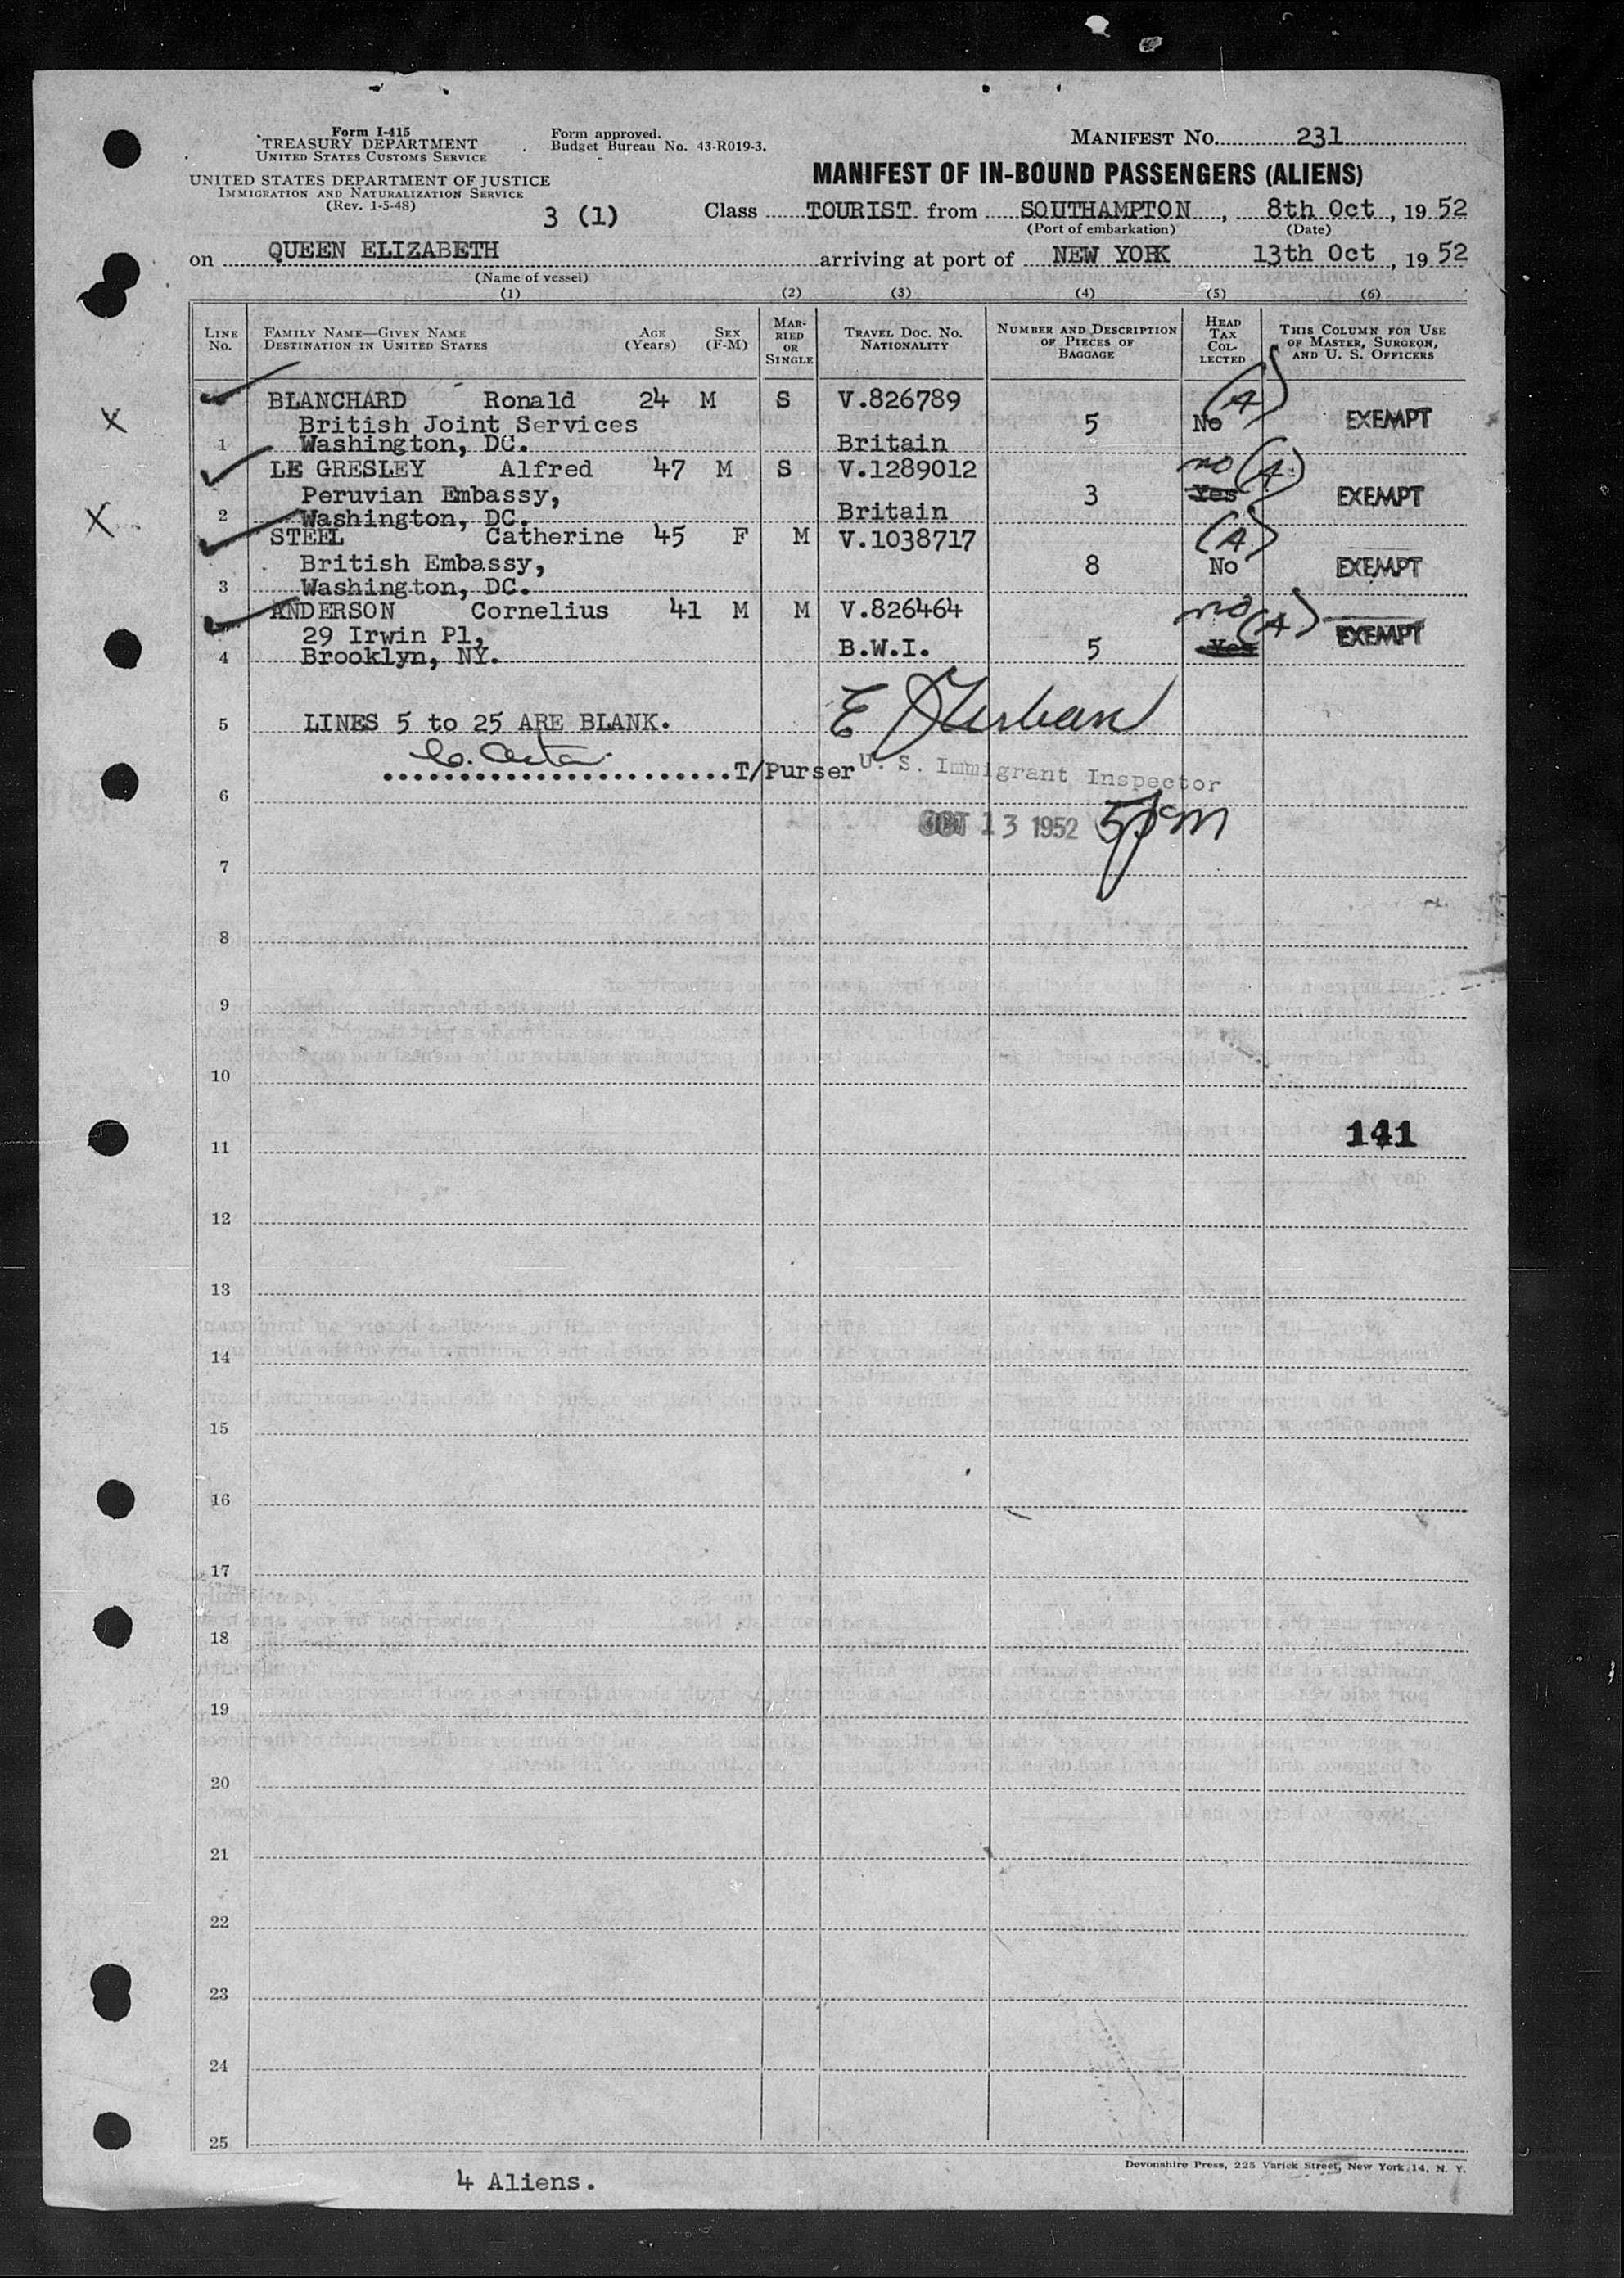 Form I-415
TREASURY DEPARTMENT
UNITED STATES CUSTOMS SERVICE
UNITED STATES DEPARTMENT OF JUSTICE
IMMIGRATION AND NATURALIZATION SERVICE
(Rev. 1-5-48)
Form approved.
Budget Bureau No. 43-R019-3.
MANIFEST No. 231
MANIFEST OF IN-BOUND PASSENGERS (ALIENS)
3 (1)
Class TOURIST from SOUTHAMPTON, 8th Oct, 19 52
(Port of embarkation) (Date)
on QUEEN ELIZABETH arriving at port of NEW YORK 13th Oct, 19 52
(Name of vessel)
(1) (2) (3) (4) (5) (6)
LINE No.
FAMILY NAME—GIVEN NAME
DESTINATION IN UNITED STATES
AGE (Years)
SEX (F-M)
MARRIED OR SINGLE
TRAVEL DOC. NO.
NATIONALITY
NUMBER AND DESCRIPTION OF PIECES OF BAGGAGE
HEAD TAX COLLECTED
THIS COLUMN FOR USE OF MASTER, SURGEON, AND U. S. OFFICERS
BLANCHARD Ronald 24 M S V.826789 (A)
X British Joint Services 5 No EXEMPT
1 Washington, DC. Britain
LE GRESLEY Alfred 47 M S V.1289012 no (A)
Peruvian Embassy, 3 Yes EXEMPT
X 2 Washington, DC. Britain
STEEL Catherine 45 F M V.1038717 (A)
British Embassy, 8 No EXEMPT
3 Washington, DC.
ANDERSON Cornelius 41 M M V.826464 no (A)
29 Irwin Pl, EXEMPT
4 Brooklyn, NY. B.W.I. 5 Yes
5 LINES 5 to 25 ARE BLANK.
T/Purser U. S. Immigrant Inspector
6
OCT 13 1952 5pm
7
8
9
10
11 141
12
13
14
15
16
17
18
19
20
21
22
23
24
25
Devonshire Press, 225 Varick Street, New York 14, N. Y.
4 Aliens.